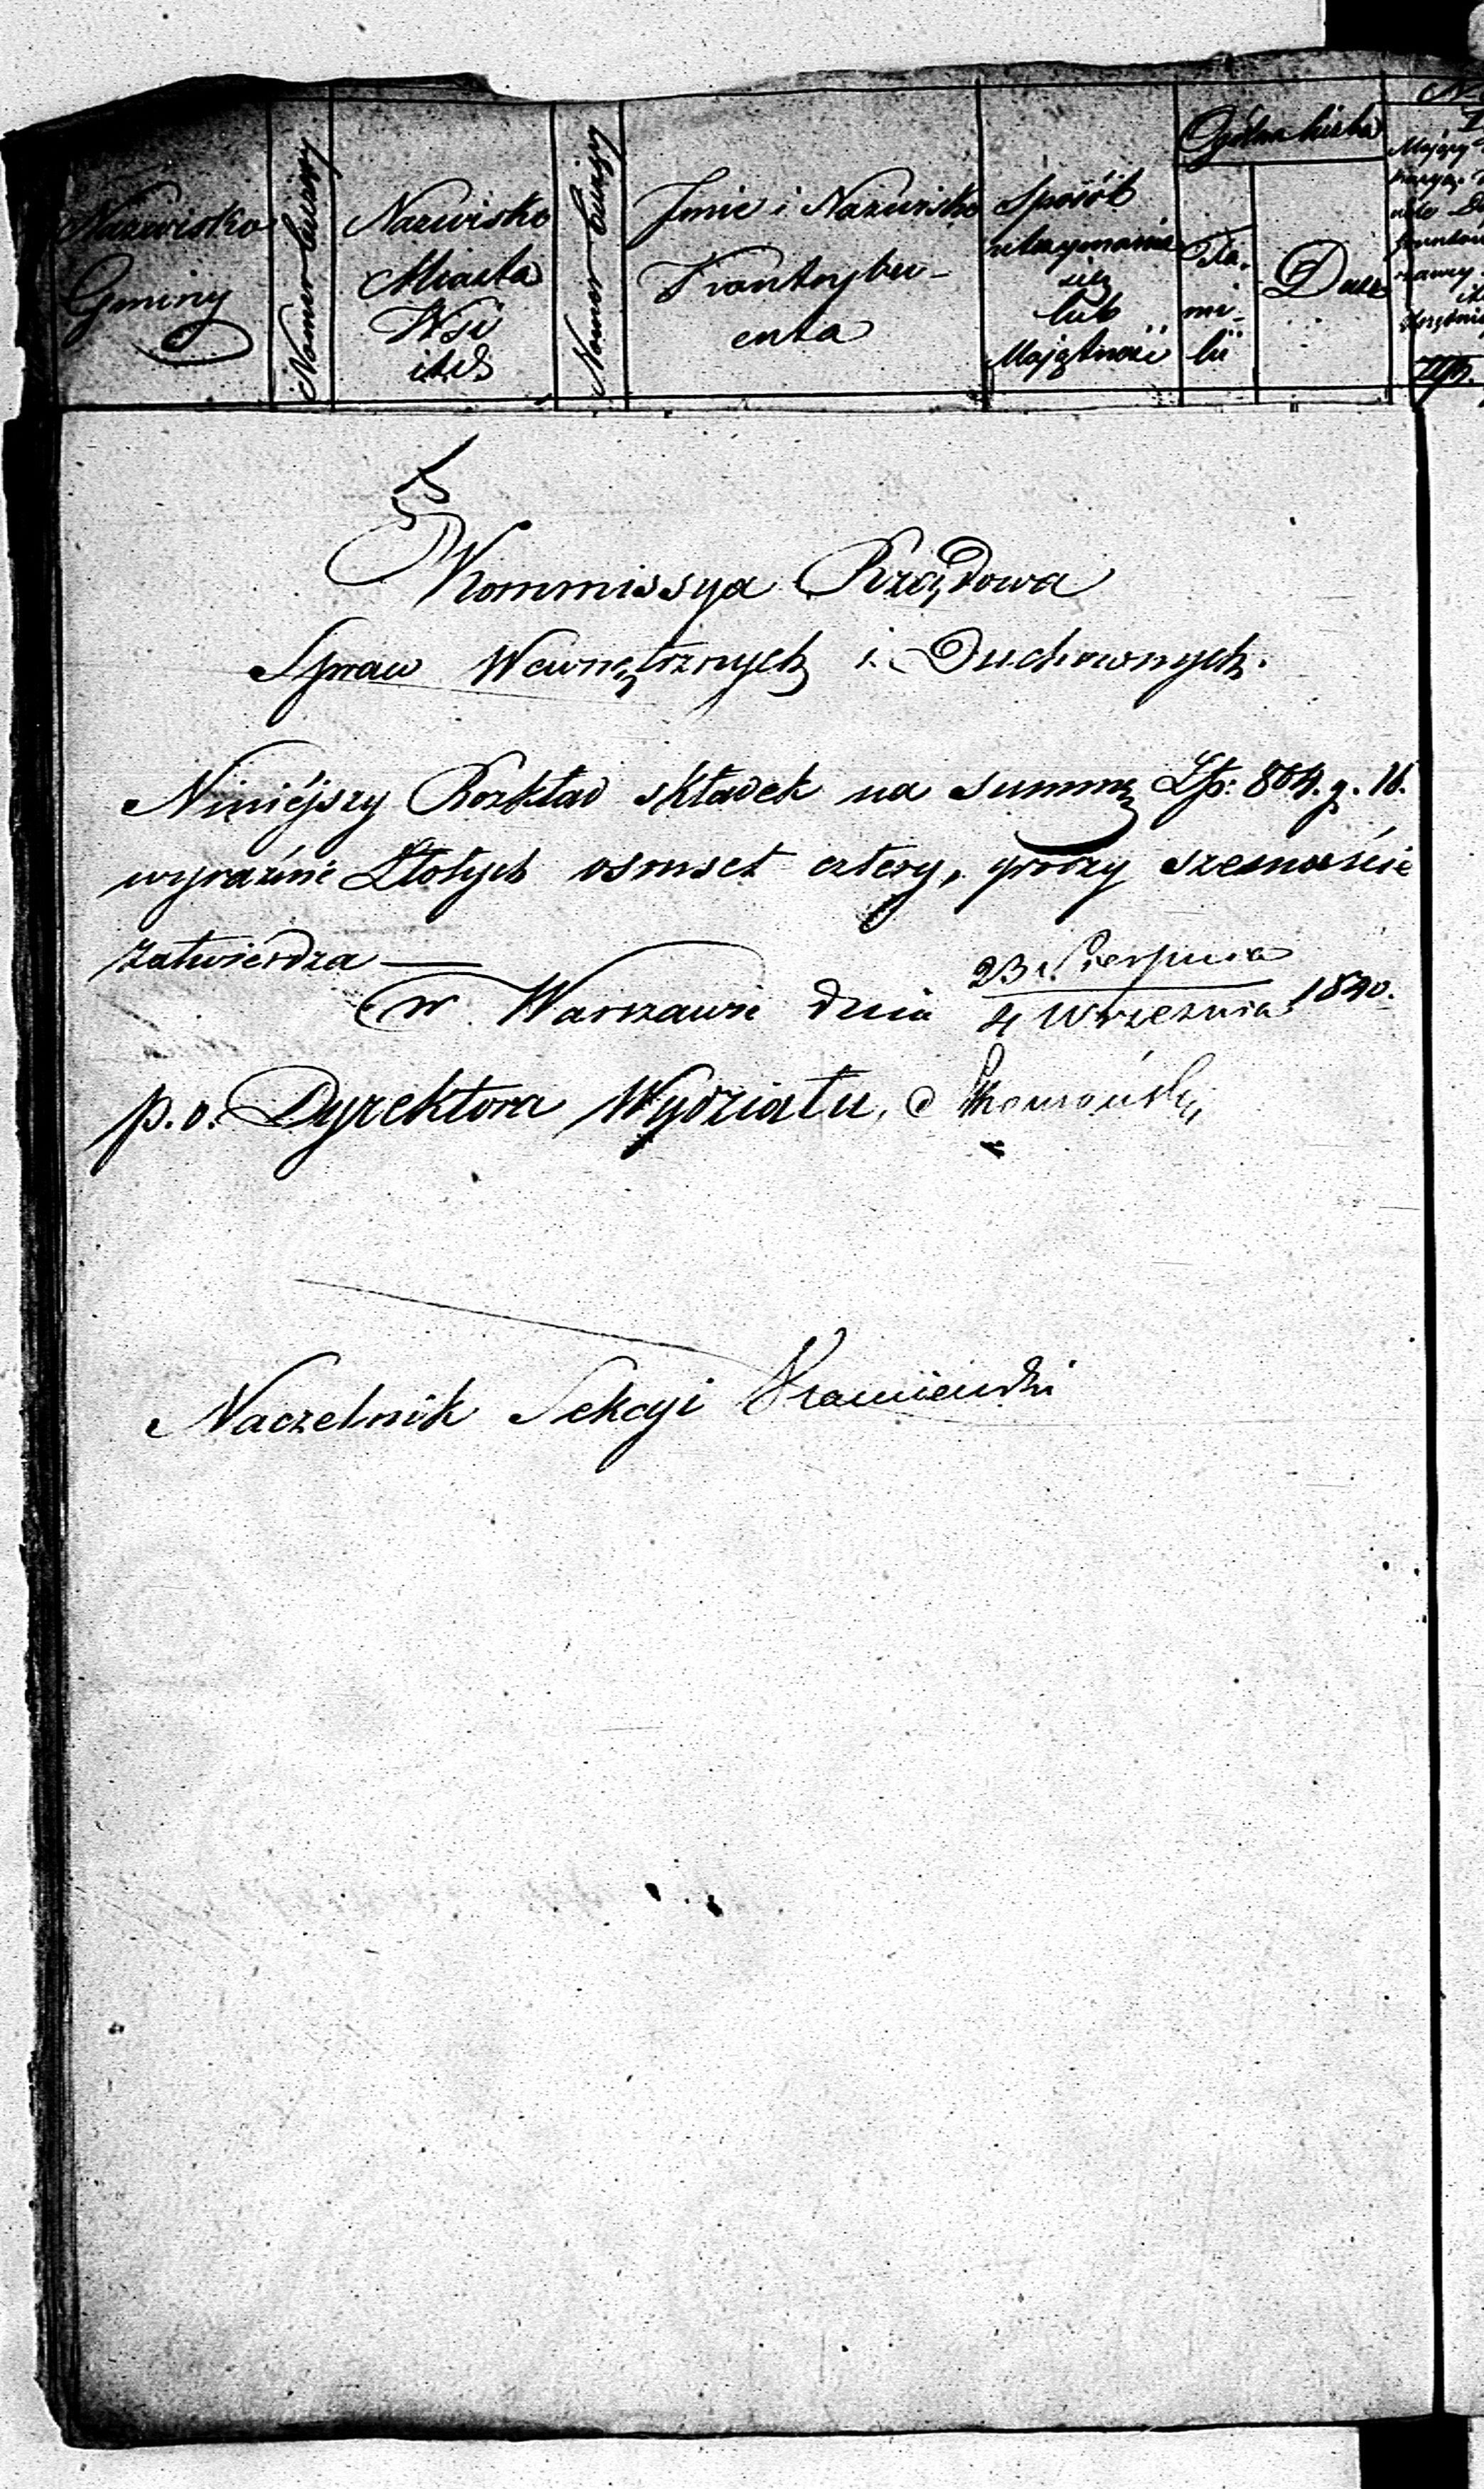 Nazwisko
Gminy
Numer bieżący
Nazwisko
Miasta
Wsi
itd
Numer bieżący
Imie i Nazwisko
Kontrybu-
enta
Sposób
utrzymania
się
lub
Majętność
Ogólna liczba
Fa-
mi-
lii
Dusz
Kommissya Rządowa
Spraw Wewnętrznych i Duchownych.
Niniéjszy Rozkład składek na summę Złp: 804. g. 16.
wyraźnie Złotych osmset cztery, groszy szesnaście
zatwierdza —
w Warszawie dnia 23 Sierpnia
4 Września 1840.
p. o. Dyrektora Wydziału,
Naczelnik Sekcyi